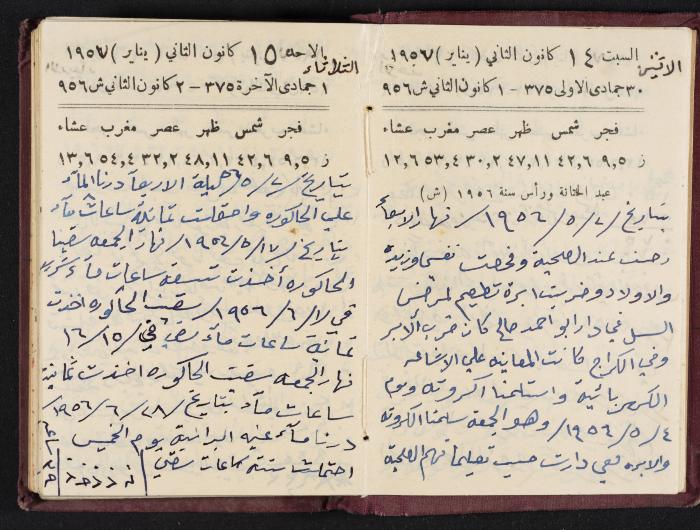 السبت ١٤ كانون الثاني (يناير) ١٩٥٧
الاثنين
٣٠ جمادى الاولى ٣٧٥ – ١ كانون الثاني ش ٩٥٦
فجر شمس ظهر عصر مغرب عشاء
ز ٩,٥ ٤٢,٦ ٤٧,١١ ٣٠,٢ ٥٣,٤ ١٢,٦
عيد الختانة ورأس سنة ١٩٥٦ (ش)
بتاريخ /٢/٥/١٩٥٦/ نهار الاربعاء
رحت عند الصحية وفحصت نفسي
والاولاد وضربت ابرة تطعيم لمرض
السل في دار ابو احمد صالح كان ضرب الأبر
وفي الكراج كانت المعاينه على الاشاعه
الكهربائية واستلمنا الكروته ويوم
/٤/٥/١٩٥٦/ وهو الجمعة سلمنا الكروته
والابره في دارت حسب تعليماتهم الصحية
الاحد ١٥ كانون الثاني (يناير) ١٩٥٧
الثلاثاء
١ جمادى الآخرة ٣٧٥ – ٢ كانون الثاني ش ٩٥٦
فجر شمس ظهر عصر مغرب عشاء
ز ٩,٥ ٤٢,٦ ٤٨,١١ ٣٢,٢ ٥٤,٤ ١٣,٦
بتاريخ /٢/٥/ ليلة الاربعاء درنا الماء
على الحاكوره واحتملت ثمانية ساعات ماء
بتاريخ /١٧/٥/١٩٥٦/ نهار الجمعه سقينا
الحاكوره أخذت تسعة ساعات ماء
في /٦/١٩٥٦/ سقيت الحاكوره اخذت
ثمانه ساعات ماء سقي في /١٥/٦
نهار الجمعه سقيت الحاكوره اخذت ثمانية
ساعات ماء بتاريخ /٢٨/٦/١٩٥٦/
درنا ماء البرانية يوم الخميس
احتملت ستة ساعات سقي